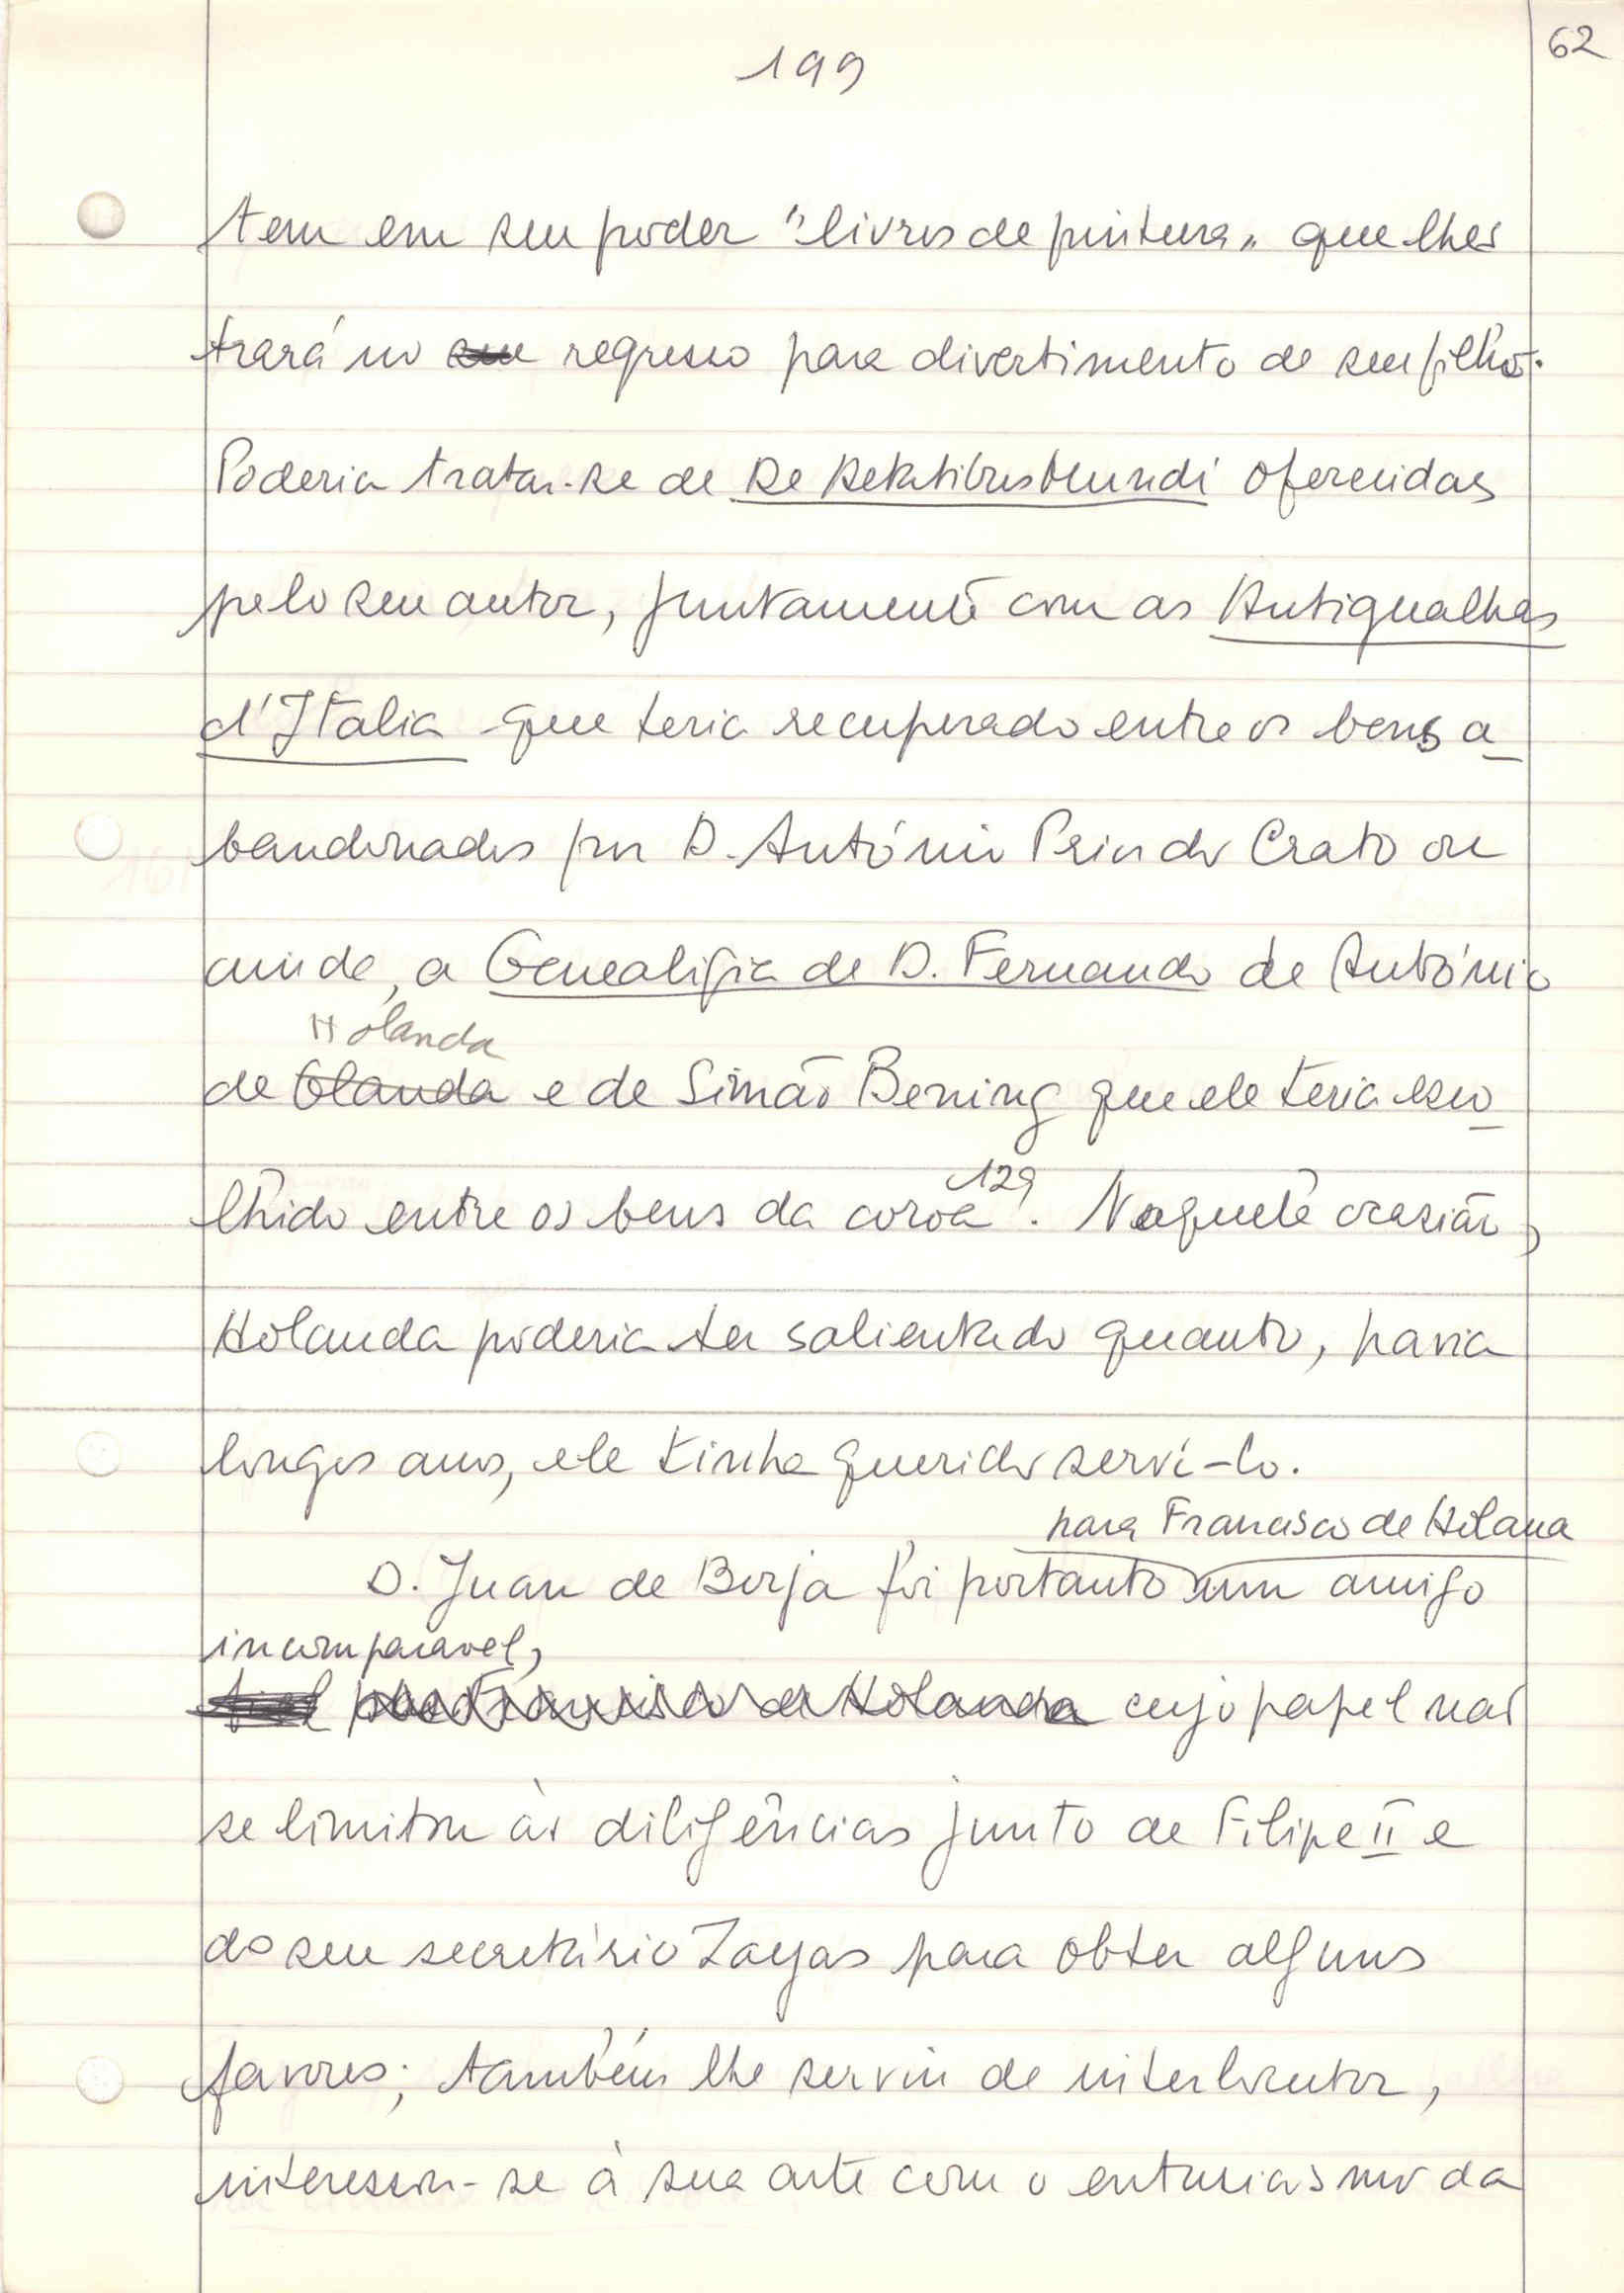 199
62
tem em seu poder "livros de pintura" que lhes
trará no seu regresso para divertimento de seu filho.
Poderia tratar-se de De Aetatibus Mundi oferecidas
pelo seu autor, juntamente com as Antigualhas
d'Italia que teria recuperado entre os bens a
bandonados por D. António Prior do Crato ou
ainda, a Genealogia de D. Fernando de António
Holanda
de Olanda e de Simão Bening que ele teria esco
lhido entre os bens da coroa 129. Naquela ocasião,
Holanda poderia ter salientado quanto, havia
longos anos, ele tinha querido servi-lo.
para Francisco de Holana
D. Juan de Borja foi portanto um amigo
incomparavel,
fiel para Francisco de Holanda cujo papel não
se limitou às diligências junto de Filipe II e
do seu secretário Zayas para obter alguns
favores; também lhe serviu de interlocutor,
interessou-se à sua arte com o entusiasmo da